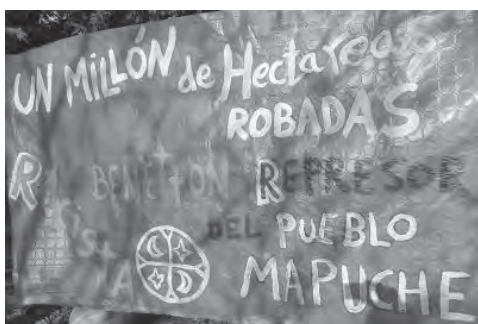 UN MILLÓN de Hectareas
ROBADAS
R BENETTON REPRESOR
DEL PUEBLO
MAPUCHE